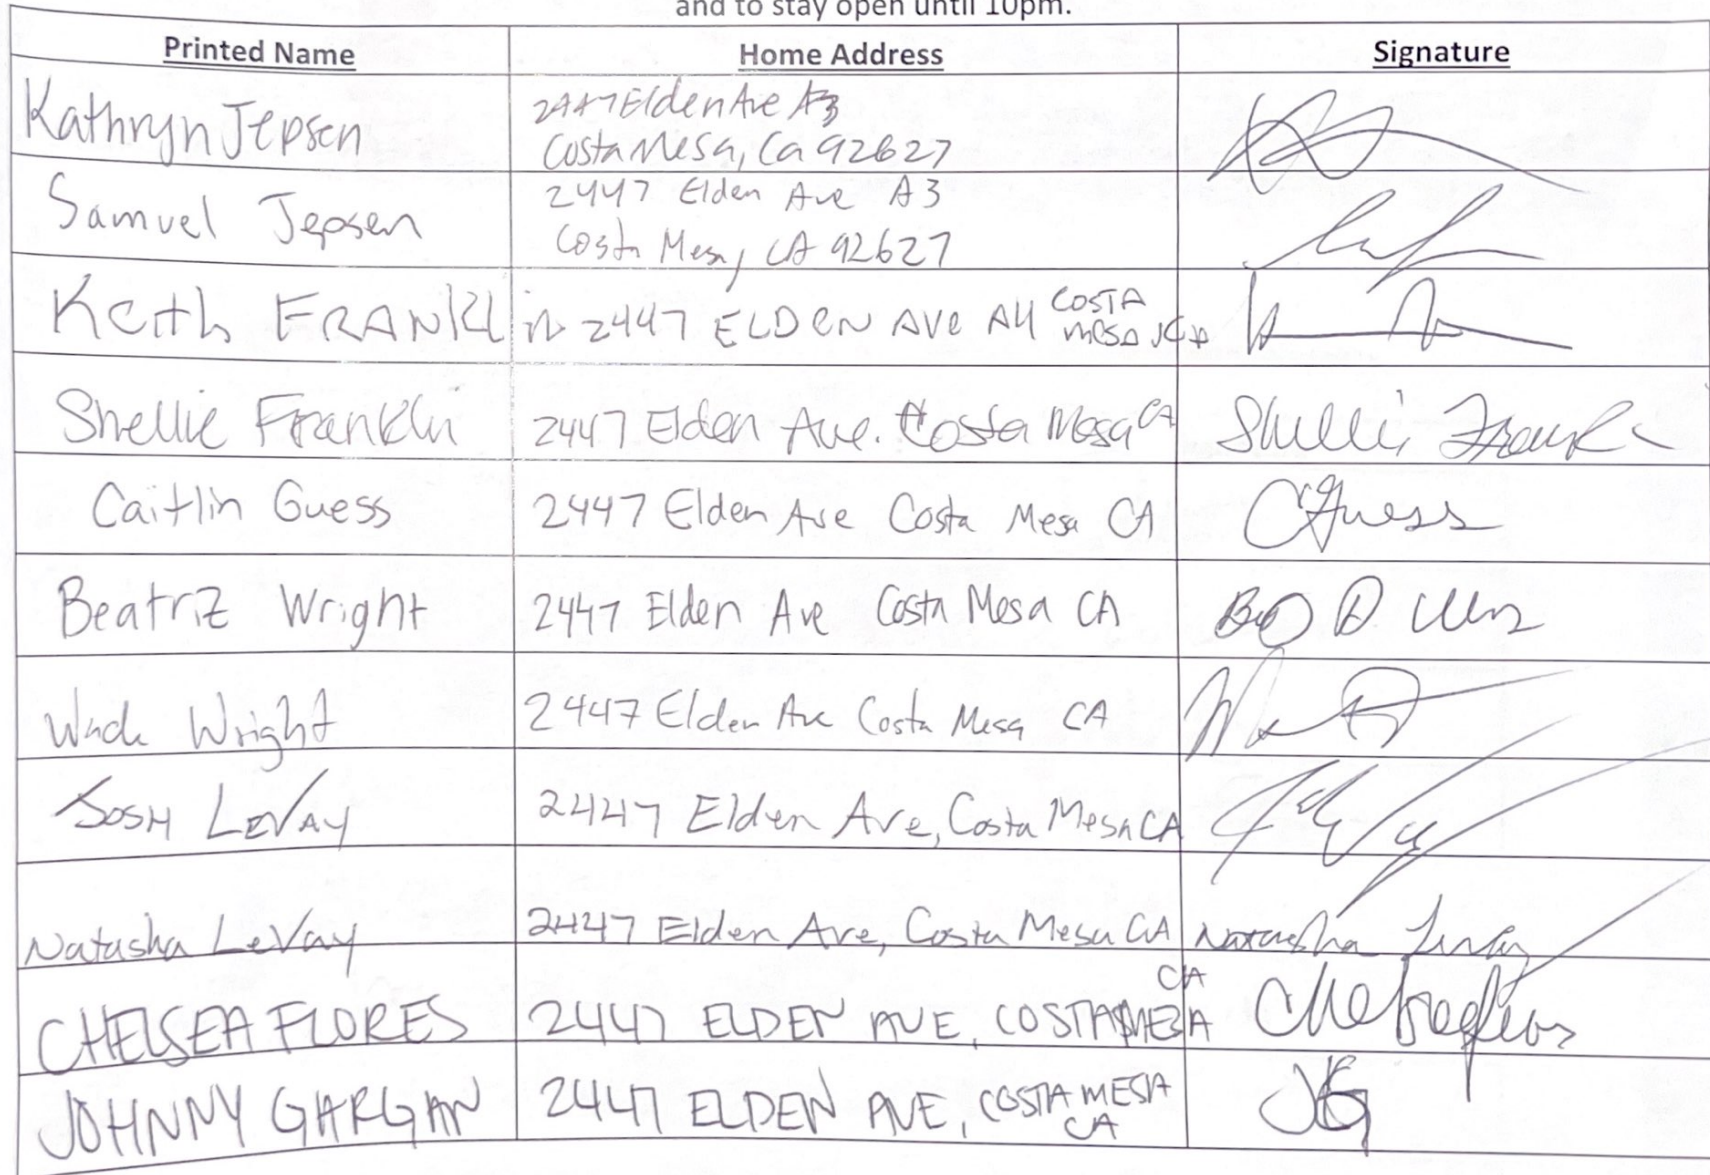 and to stay open until 10pm.
Printed Name Home Address Signature
Kathryn Jepsen 2447 Elden Ave A3
Costa Mesa, Ca 92627
Samuel Jepsen 2447 Elden Ave A3
Costa Mesa, CA 92627
Keith FRANKlin 2447 ELDEN AVE A4 COSTA
MESA, CA
Shellie Franklin 2447 Elden Ave. Costa Mesa CA Shellie Frank
Caitlin Guess 2447 Elden Ave Costa Mesa CA CGuess
Beatriz Wright 2447 Elden Ave Costa Mesa CA
Wade Wright 2447 Elden Ave Costa Mesa CA
JOSH LEVAY 2447 Elden Ave, Costa Mesa CA
Natasha LeVay 2447 Elden Ave, Costa Mesa CA Natasha Levay
CHELSEA FLORES 2447 ELDEN AVE, COSTA MESA CA
JOHNNY GARGAN 2447 ELDEN AVE, COSTA MESA
CA JG